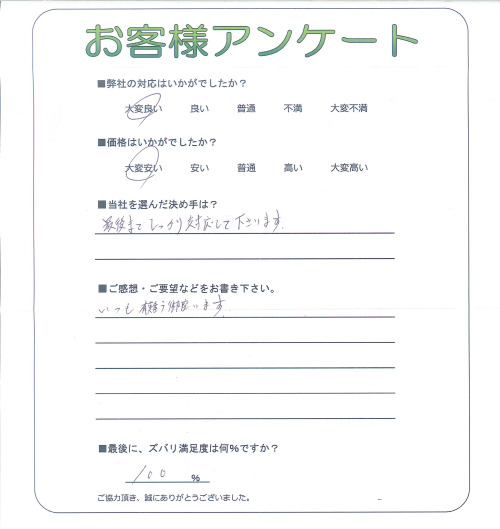 お客様アンケート
■弊社の対応はいかがでしたか？
大変良い 良い 普通 不満 大変不満
■価格はいかがでしたか？
大変安い 安い 普通 高い 大変高い
■当社を選んだ決め手は？
最後まで しっかり 対応して 下さいます.
■ご感想・ご要望などをお書き下さい。
いつも 有難う御座います.
■最後に、ズバリ満足度は何%ですか？
100 %
ご協力頂き、誠にありがとうございました。